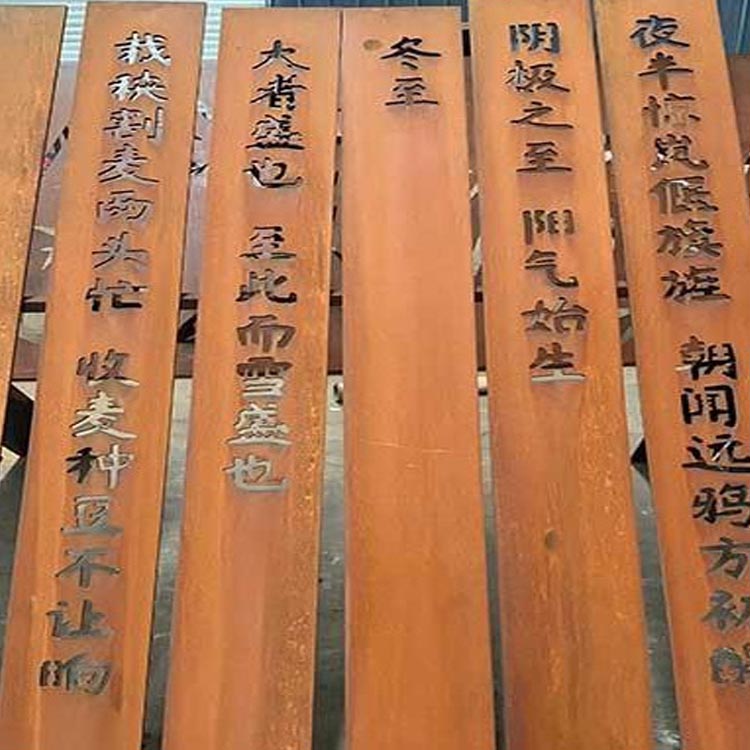 栽秧割麦两头忙 收麦种豆不让晌
大者盛也 至此而雪盛也
冬至
阴极之至 阳气始生
夜半惊岚偃旗旌 朝闻远鸦方初